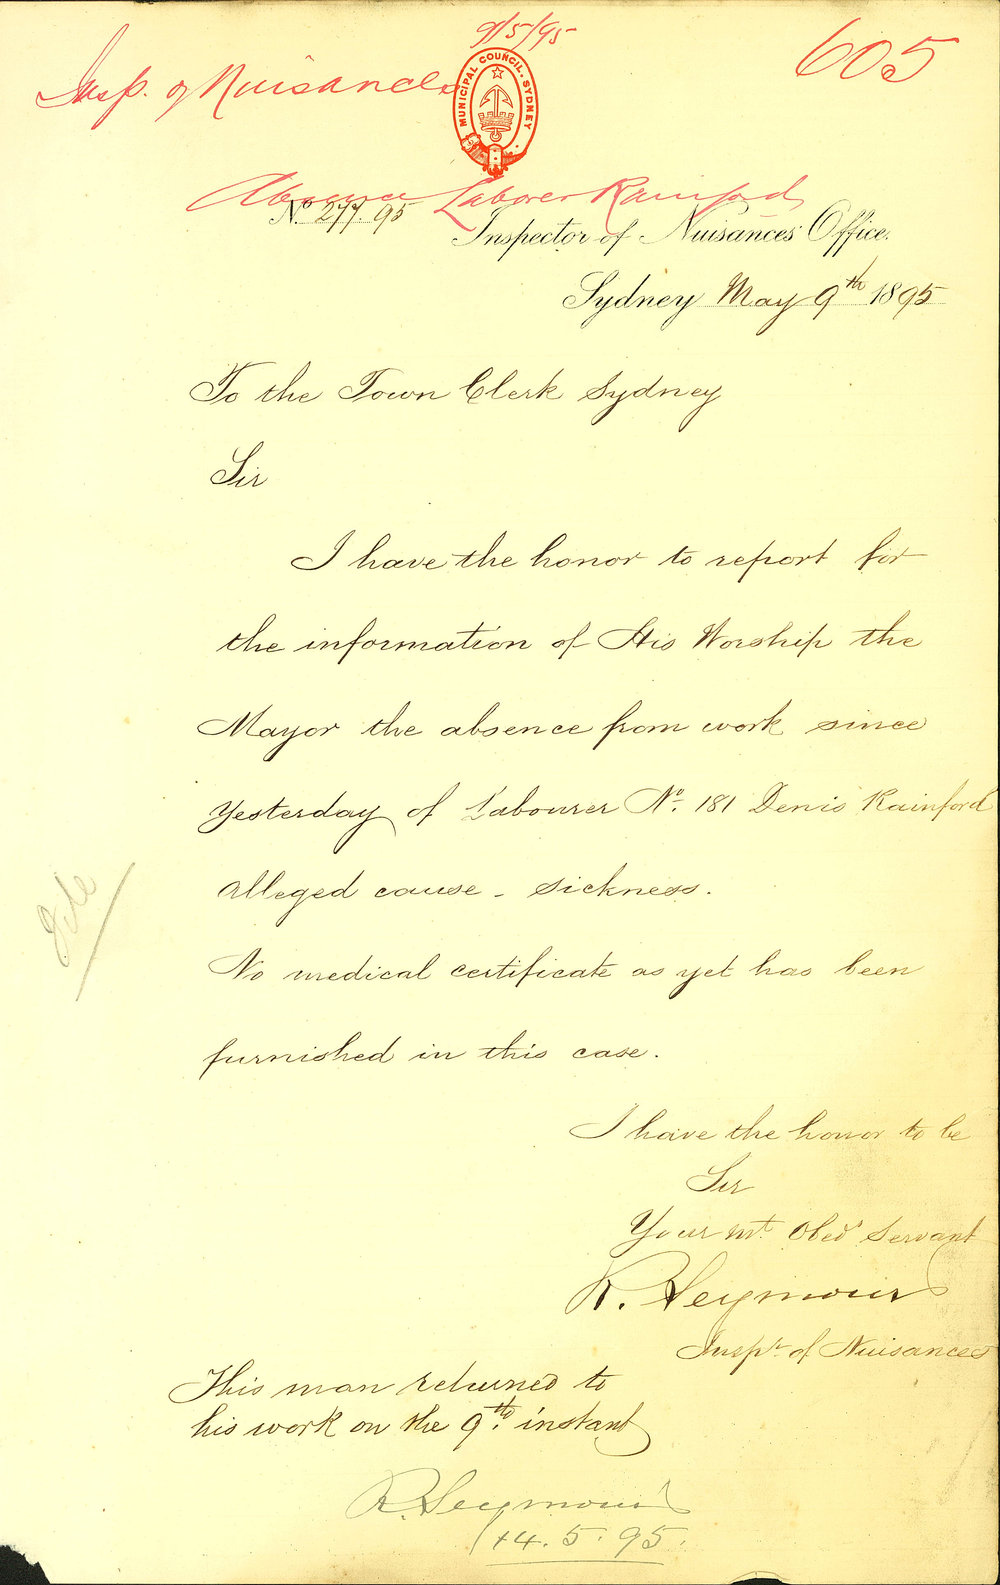 9/5/95
605
Insp. of Nuisances
MUNICIPAL COUNCIL. SYDNEY
Absence Laborer Rainford
No. 277.95
Inspector of Nuisances Office.
Sydney May 9th 1895
To the Town Clerk Sydney
Sir
I have the honor to report for
the information of His Worship the
Mayor the absence from work since
Yesterday of Labourer No. 181 Denis Rainford
alleged cause - sickness.
No medical certificate as yet has been
furnished in this case.
I have the honor to be
Sir
Your mt. Obed Servant
R. Seymour
Inspt. of Nuisances
This man returned to
his work on the 9th. instant
R. Seymour
14.5.95.